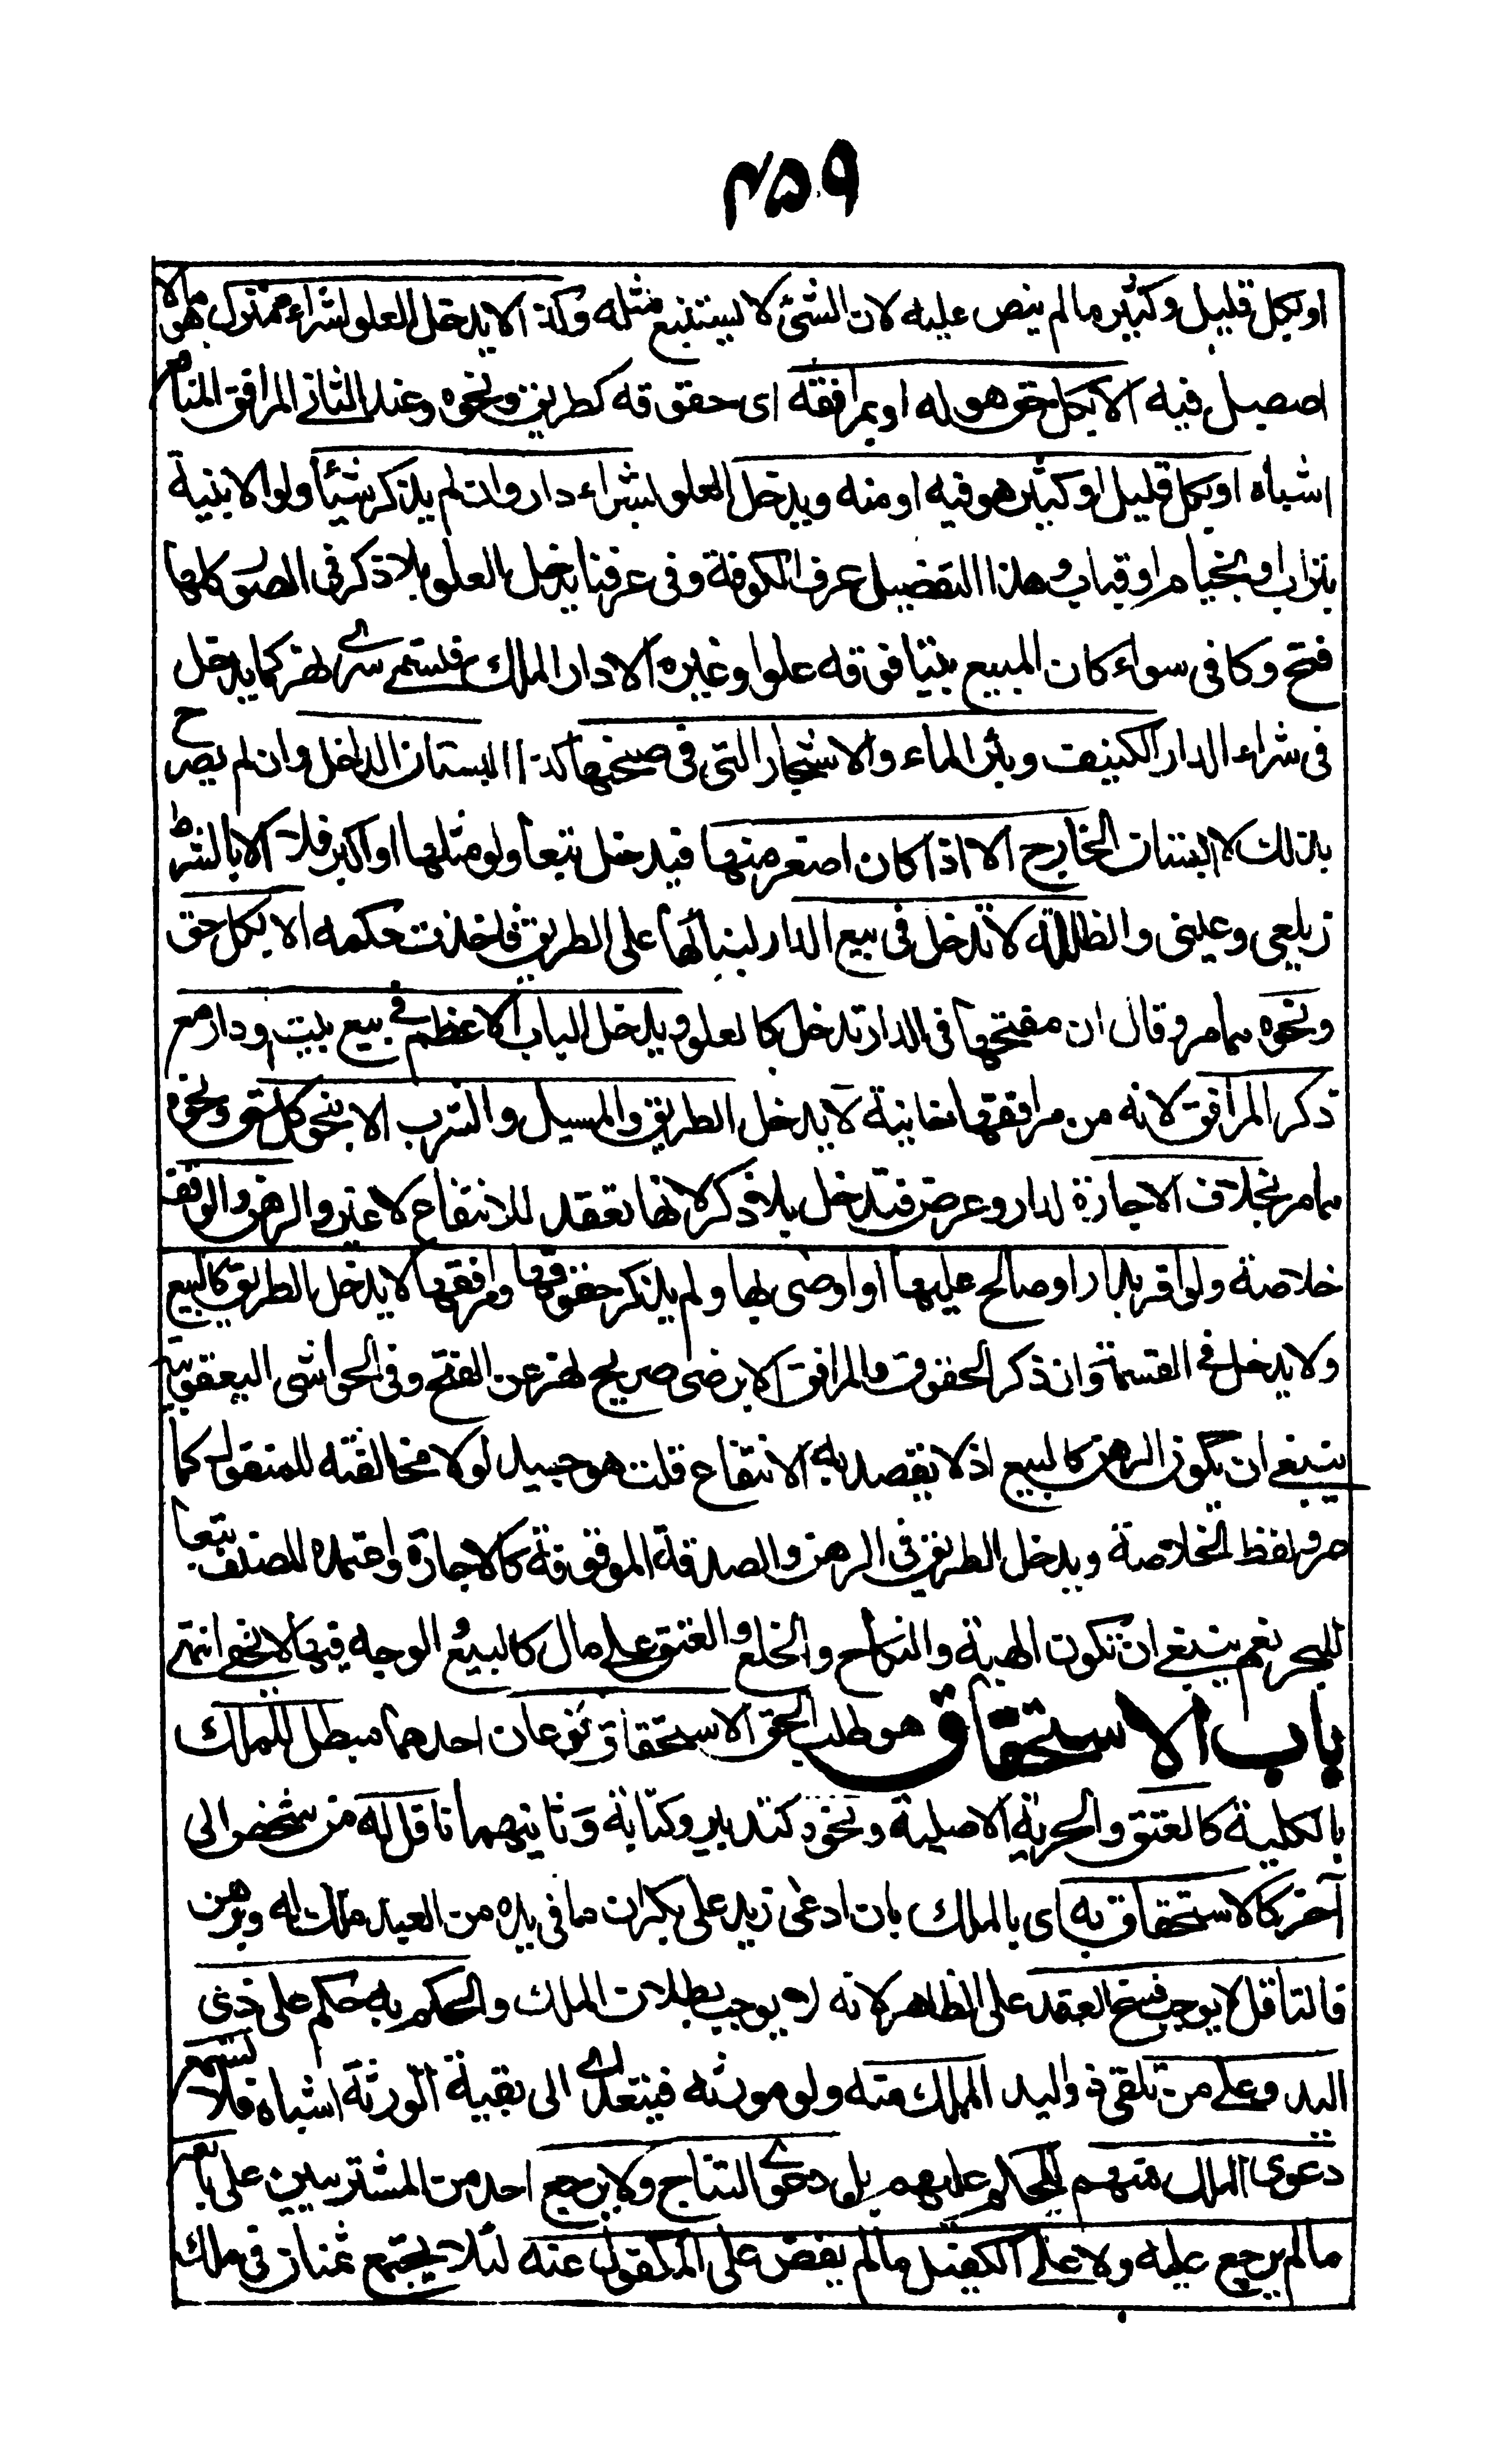 ٤٥٩
او بكل قليل وكثير ما لم ينص عليه لان الشئ لا يستتبع مثله وكذا لا يدخل العلو بشراء منزل هو مالا
اصصيل فيه الا بكل حق هو له او بمرافقه اى حقوقه كطريق ونحوه وعند الثانى المرافق المنافع
اشباه او بكل قليل او كثير هو فيه او منه ويدخل العلو بشراء دار وان لم يذكر شيئا ولو الابنية
بتراب او بخيام او قباب وهذا التفصيل عرف الكوفة وفى عرفنا يدخل العلو بلا ذكر فى الصور كلها
فتح وكافى سواء كان المبيع بيتا فوقه علو او غيره الا دار الملك فتسمى سراى نهر كما يدخل
فى شراء الدار الكنيف وبئر الماء والاشجار التى فى صحنها كذا البستان الداخل وان لم يصرح
بذلك لا البستان الخارج الا اذا كان اصغر منها فيدخل تبعا ولو مثلها او اكبر فلا الا بالشرط
زيلعى وعينى والظلة لا تدخل فى بيع الدار لبنائها على الطريق فاخذت حكمه الا بكل حق
ونحوه مما مر وقال ان مفتحها فى الدار تدخل كالعلو ويدخل الباب الاعظم فى بيع بيت ودار مع
ذكر المرافق لانه من مرافقها خانية لا يدخل الطريق والمسيل والشرب الا بنحو كل حق ونحوه
مما مر بخلاف الاجارة لدار وعرض فتدخل بلا ذكر لانها تعقد للانتفاع لا غير والرهن والوقف
خلاصة ولو اقر بدار او صالح عليها او اوصى بها ولم يذكر حقوقها ومرافقها لا يدخل الطريق كالبيع
ولا يدخل فى القسمة وان ذكر الحقوق والمرافق الا برضى صريح نهر عن الفتح وفى الحواشى اليعقوبية
ينبغى ان يكون الرهن كالبيع اذ لا يقصد به الانتفاع قلت هو جيد لولا مخالفته للمنقول كما
مر ولفظ الخلاصة ويدخل الطريق فى الرهن والصدقة الموقوفة كالاجارة واعتمده المصنف تبعا
للبحر نعم ينبغى ان تكون الهبة والنكاح والخلع والعتق على مال كالبيع والوجه فيها لا يخفى انتهى
باب الاستحقاق هو طلب الحق الاستحقاق نوعان احدهما مبطل للملك
بالكلية كالعتق والحرية الاصلية ونحوه كتدبير وكتابة وثانيهما ناقل له من شخص الى
آخر كالاستحقاق به اى بالملك بان ادعى زيد على بكر ان ما فى يده من العبد ملك له وبرهن
فالناقل لا يوجب فسخ العقد على الظاهر لانه لا يوجب بطلان الملك والحكم به حكم على ذى
اليد وعلى من تلقى ذو اليد الملك منه ولو مورثه فيتعدى الى بقية الورثة اشباه فلا تسمع
دعوى الملك منهم للحكم عليهم بل دعوى النتاج ولا يرجع احد من المشتريين على بائعه
ما لم يرجع عليه ولا على الكفيل ما لم يقض على المكفول عنه لئلا يجتمع ثمنان فى ملك